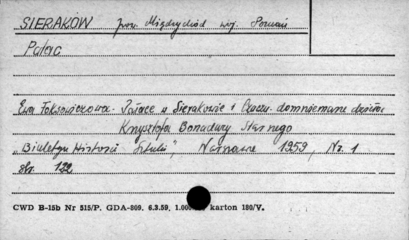 SIERAKÓW pow. Międzychód woj. Poznań
Pałac
Ewa Łoksowiczowa - Pałace w Sierakowie i domniemane dzieła
Krzysztofa Bonadury Starszego
„Biuletyn Historii Sztuki”, Warszawa 1959, Nr. 1
str. 122
CWD B-15b Nr 515/P. GDA-809. 6.3.59. karton 180/V.